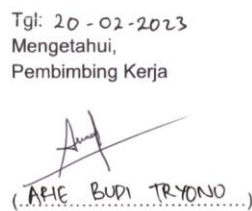 Tgl: 20-02-2023
Mengetahui,
Pembimbing Kerja
( ARIE BUDI TRYONO )